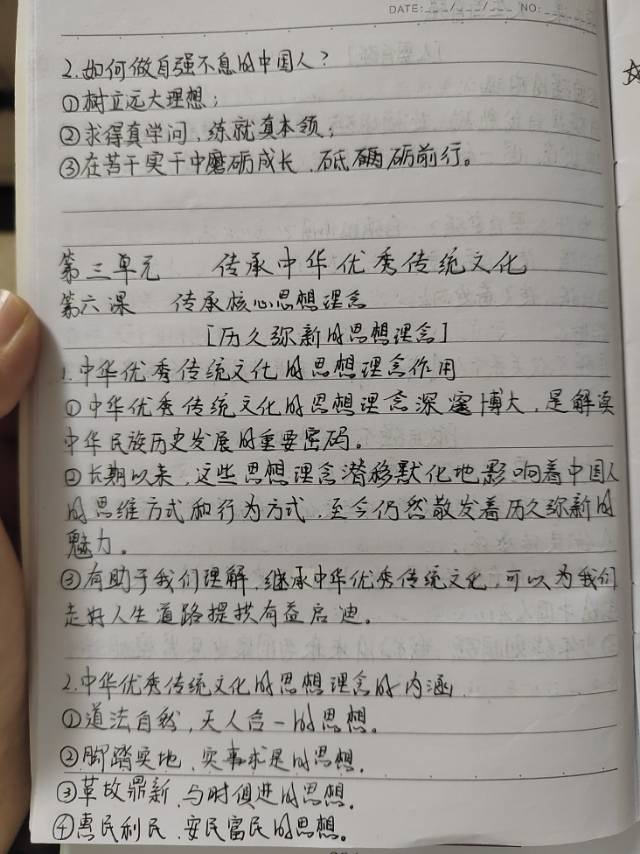 DATE: / / NO:
2.如何做自强不息的中国人?
①树立远大理想;
②求得真学问,练就真本领;
③在苦干实干中磨砺成长、砥砺前行。
第三单元 传承中华优秀传统文化
第六课 传承核心思想理念
[历久弥新的思想理念]
1.中华优秀传统文化的思想理念作用
①中华优秀传统文化的思想理念深邃博大,是解读
中华民族历史发展的重要密码。
②长期以来,这些思想理念潜移默化地影响着中国人
的思维方式和行为方式,至今仍然散发着历久弥新的
魅力。
③有助于我们理解、继承中华优秀传统文化,可以为我们
走好人生道路提供有益启迪。
2.中华优秀传统文化的思想理念的内涵
①道法自然,天人合一的思想。
②脚踏实地、实事求是的思想。
③革故鼎新、与时俱进的思想。
④惠民利民、安民富民的思想。